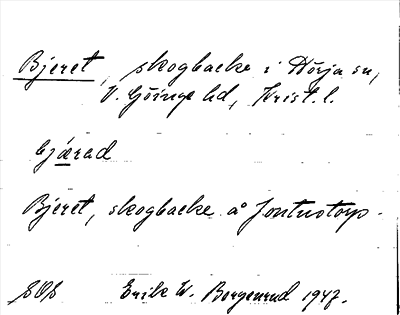 Bjeret, skogbacke i Nörja sn,
V. Göinge hd, Krist. l.
bjärad
Bjeret, skogbacke å Jontustorp.
SOS Erik W. Borgenrud 1947.